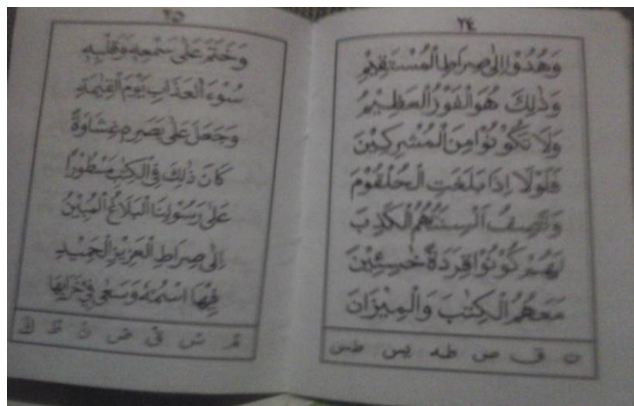 ٢٤
وَهُدُوْا إِلَى صِرَاطِ الْمُسْتَقِيْمِ
وَذٰلِكَ هُوَ الْفَوْزُ الْعَظِيْمُ
وَلَا تَكُوْنُوْا مِنَ الْمُشْرِكِيْنَ
فَلَوْلَا إِذَا بَلَغَتِ الْحُلْقُوْمَ
وَتَصِفُ أَلْسِنَتُهُمُ الْكَذِبَ
لَهُمْ كُوْنُوْا قِرَدَةً خٰسِئِيْنَ
مَعَهُمُ الْكِتٰبَ وَالْمِيْزَانَ
ن ق ص طه يس طس
٢٥
وَخَتَمَ عَلَى سَمْعِهِ وَقَلْبِهِ
سُوْءَ الْعَذَابِ يَوْمَ الْقِيٰمَةِ
وَجَعَلَ عَلَى بَصَرِهِ غِشَاوَةً
كَانَ ذٰلِكَ فِي الْكِتٰبِ مَسْطُوْرًا
عَلَى رَسُوْلِنَا الْبَلَاغُ الْمُبِيْنُ
إِلَى صِرَاطِ الْعَزِيْزِ الْحَمِيْدِ
فِيْهَا اسْمُهُ وَسَعَى فِيْ خَرَابِهَا